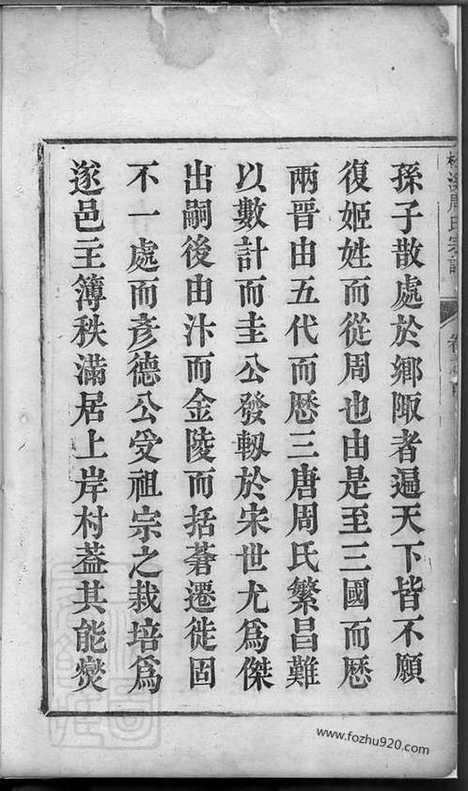 周氏宗譜
孫子散處於鄉陬者遍天下皆不願
復姬姓而從周也由是至三國而厯
兩晉由五代而厯三唐周氏繁昌難
以數計而圭公發軔於宋世尤爲傑
出嗣後由汴而金陵而括蒼遷徙固
不一處而彥德公受祖宗之栽培爲
遂邑主簿秩滿居上岸村葢其能爕
www.fozhu920.com